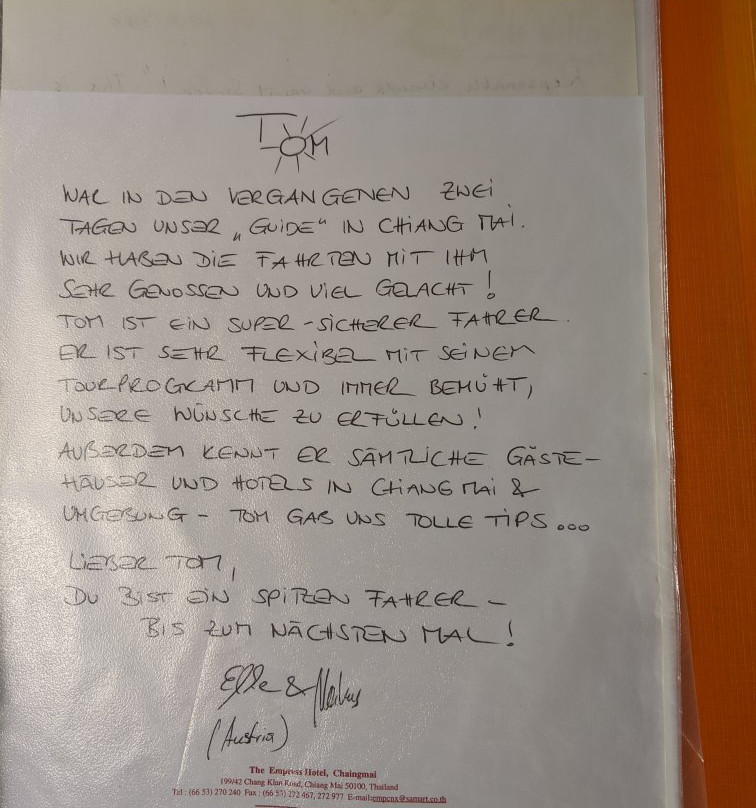 TOM
WAR IN DEN VERGANGENEN ZWEI
TAGEN UNSER „GUIDE“ IN CHIANG MAI.
WIR HABEN DIE FAHRTEN MIT IHM
SEHR GENOSSEN UND VIEL GELACHT!
TOM IST EIN SUPER-SICHERER FAHRER.
ER IST SEHR FLEXIBEL MIT SEINEM
TOURPROGRAMM UND IMMER BEMÜHT,
UNSERE WÜNSCHE ZU ERFÜLLEN!
AUßERDEM KENNT ER SÄMTLICHE GÄSTE-
HÄUSER UND HOTELS IN CHIANG MAI &
UMGEBUNG - TOM GAB UNS TOLLE TIPS...
LIEBER TOM,
DU BIST EIN SPITZEN FAHRER -
BIS ZUM NÄCHSTEN MAL!
&
(Austria)
The Empress Hotel, Chaingmai
199/42 Chang Klan Road, Chiang Mai 50100, Thailand
Tel : (66 53) 270 240 Fax : (66 53) 272 467, 272 977 E-mail:empcnx@samart.co.th